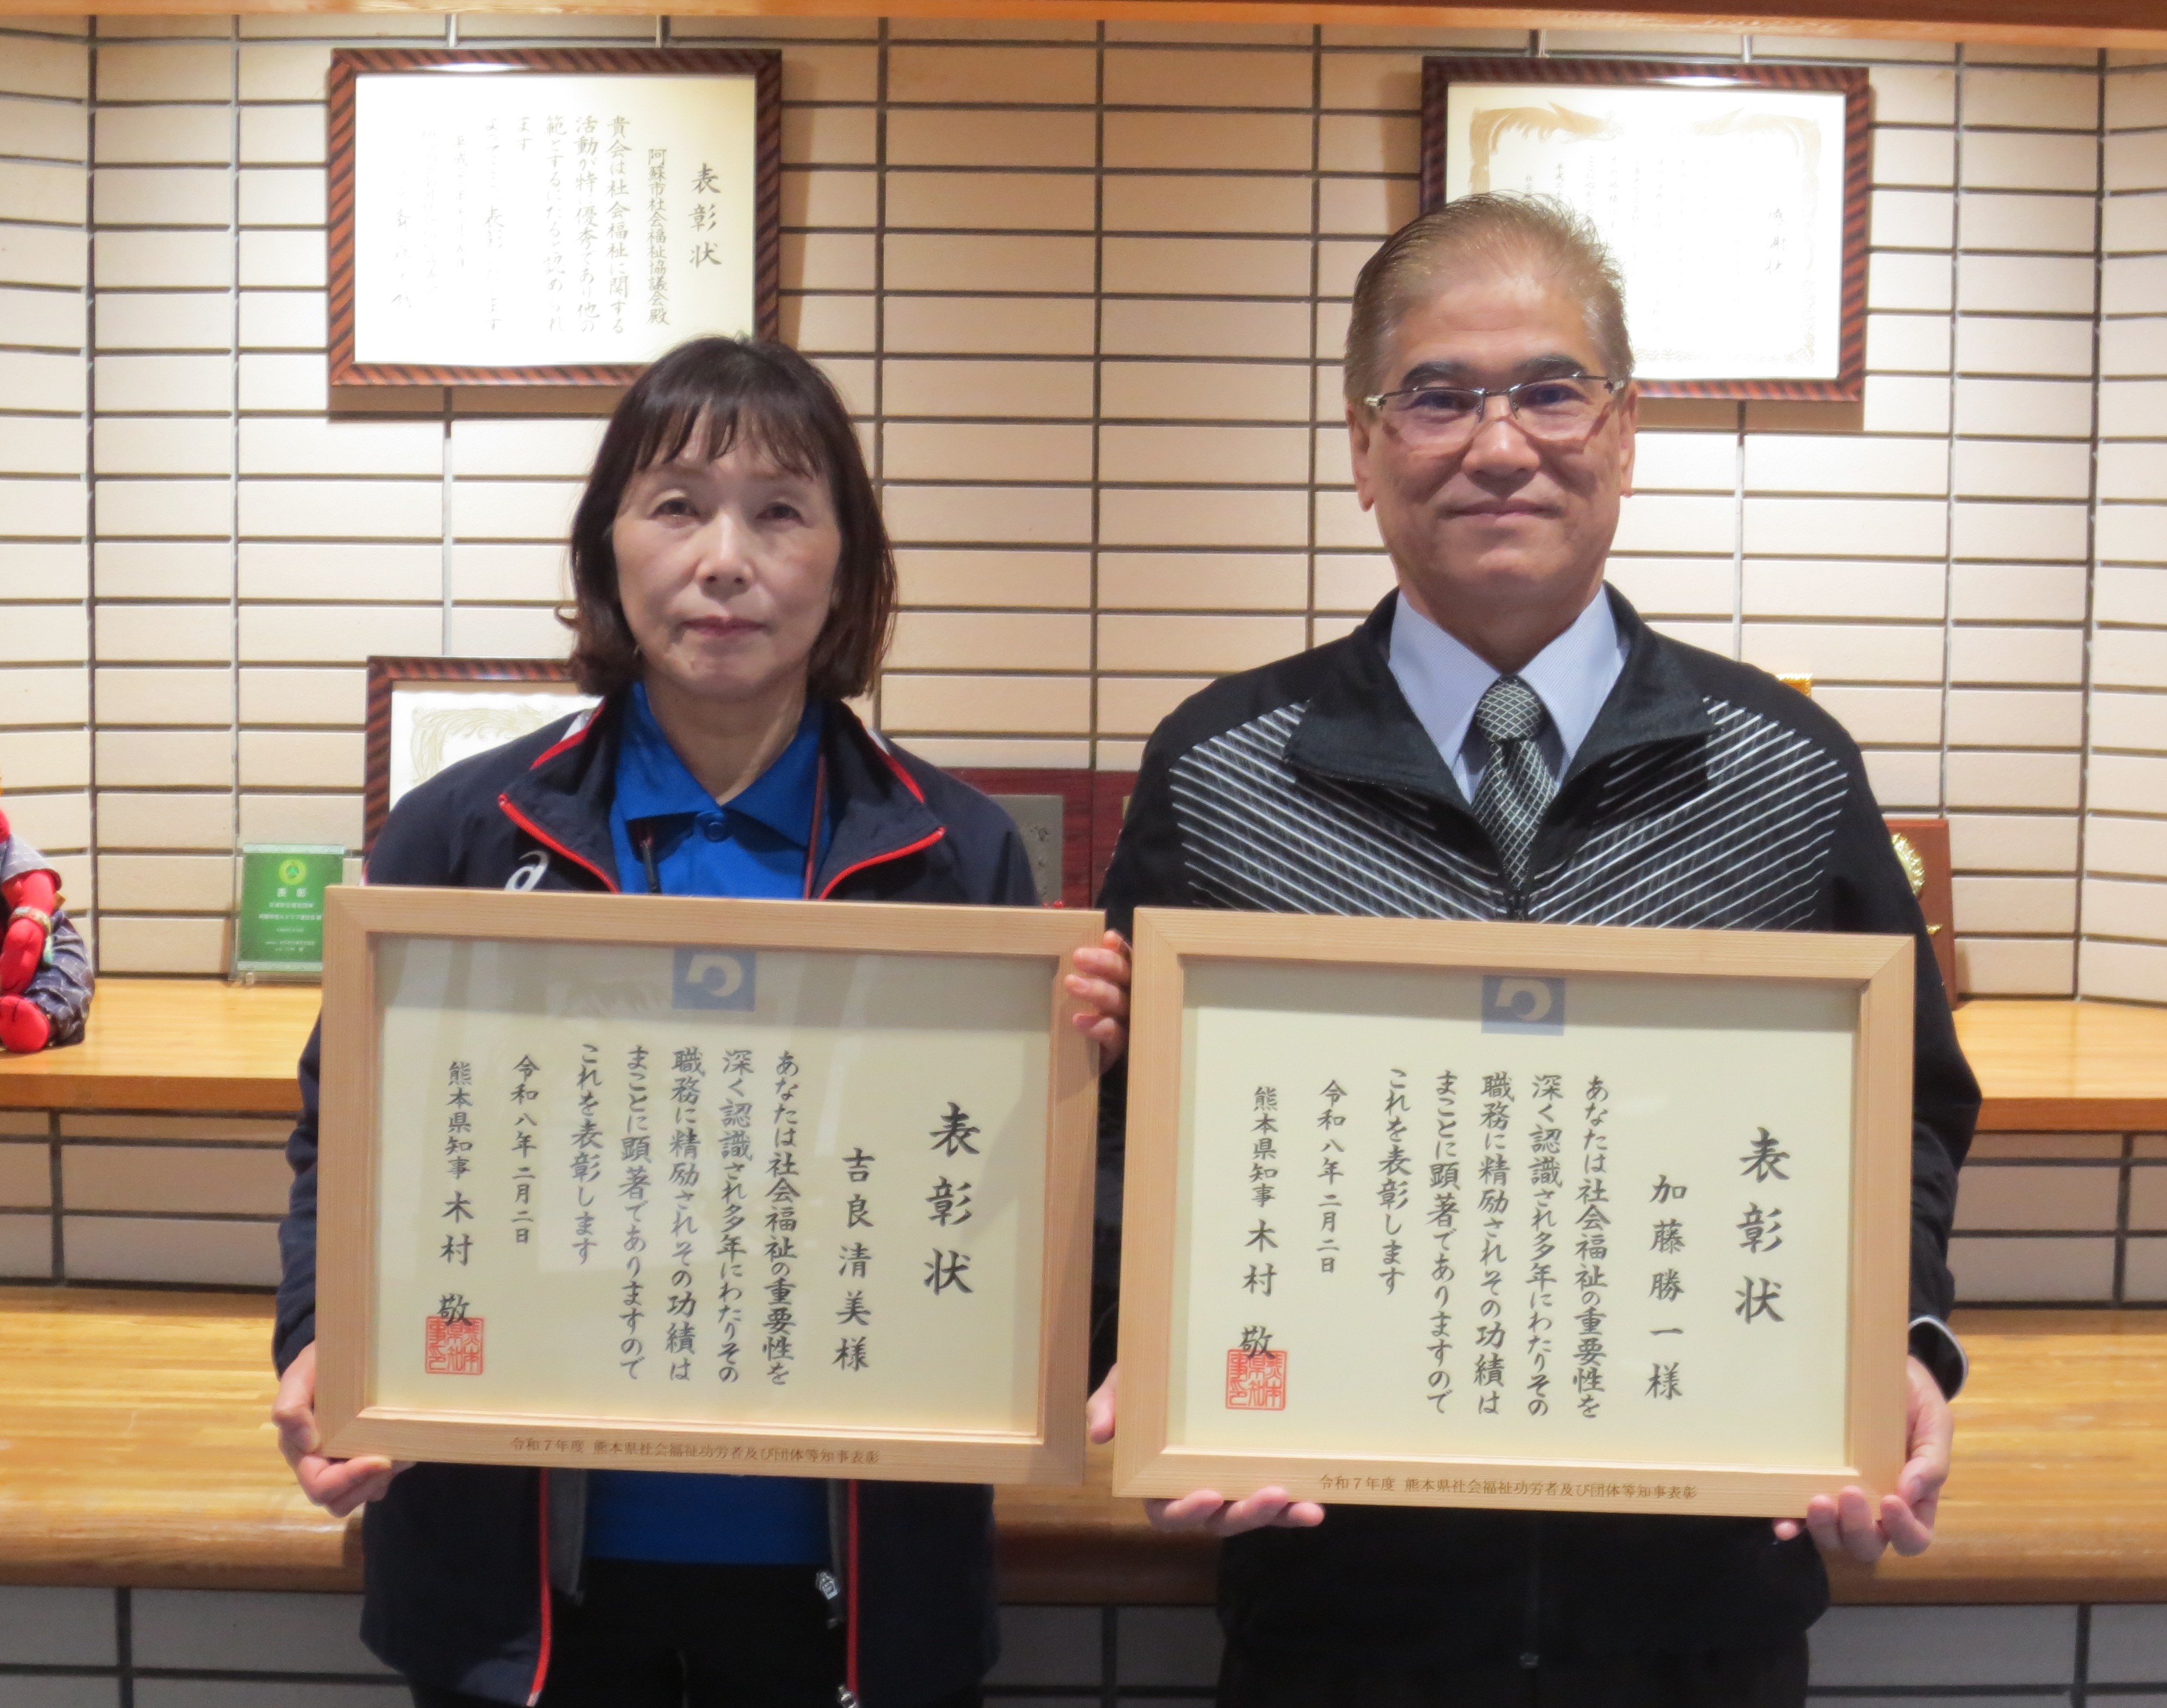 表彰状
阿蘇市社会福祉協議会殿
貴会は社会福祉に関する
活動が特に優秀であり他の
範とするにたると認められ
ます
表彰
表彰状
吉良清美様
あなたは社会福祉の重要性を
深く認識され多年にわたりその
職務に精励されその功績は
まことに顕著でありますので
これを表彰します
令和八年二月二日
熊本県知事 木村 敬
令和7年度 熊本県社会福祉功労者及び団体等知事表彰
表彰状
加藤勝一様
あなたは社会福祉の重要性を
深く認識され多年にわたりその
職務に精励されその功績は
まことに顕著でありますので
これを表彰します
令和八年二月二日
熊本県知事 木村 敬
令和7年度 熊本県社会福祉功労者及び団体等知事表彰